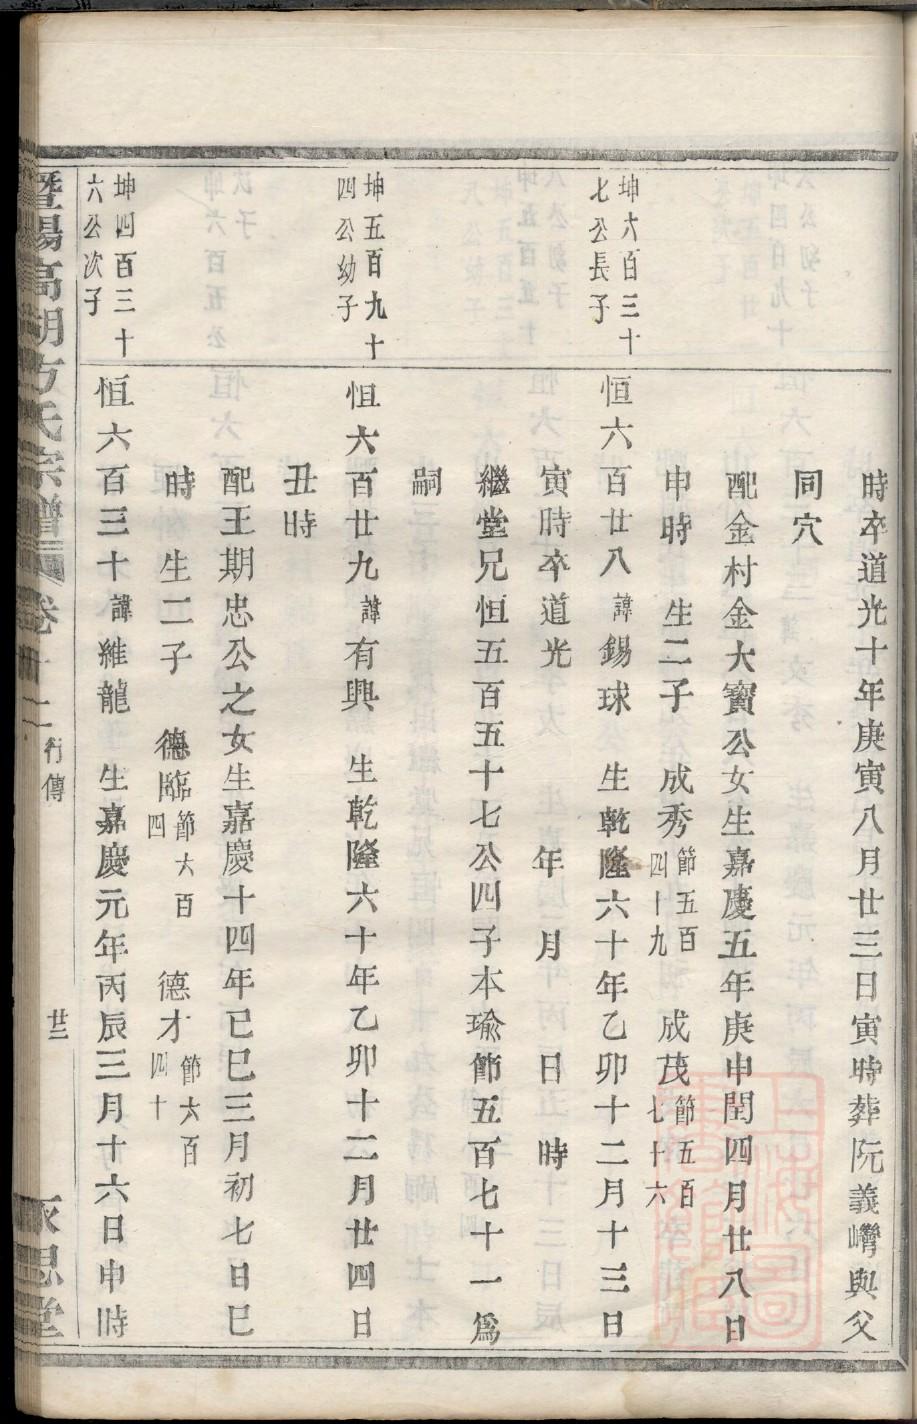 時卒道光十年庚寅八月廿三日寅時葬阮義嶆與父
同穴
配金村金大寶公女生嘉慶五年庚申閏四月廿八日
申時　生二子　成秀節五百四十九　成茂節五百七十六
坤六百三十七公長子
恒六百廿八諱錫球　生乾隆六十年乙卯十二月十三日
寅時卒道光　年　月　日　時
繼堂兄恒五百五十七公四子本瑜節五百七十一為
嗣
坤五百九十四公幼子
恒六百廿九諱有興　生乾隆六十年乙卯十二月廿四日
丑時
配王期忠公之女生嘉慶十四年己巳三月初七日巳
時　生二子　德臨節六百四　德才節六百四十
坤四百三十六公次子
恒六百三十諱維龍　生嘉慶元年丙辰三月十六日申時
暨陽高湖方氏宗譜　卷十二　行傳　廿三　永思堂